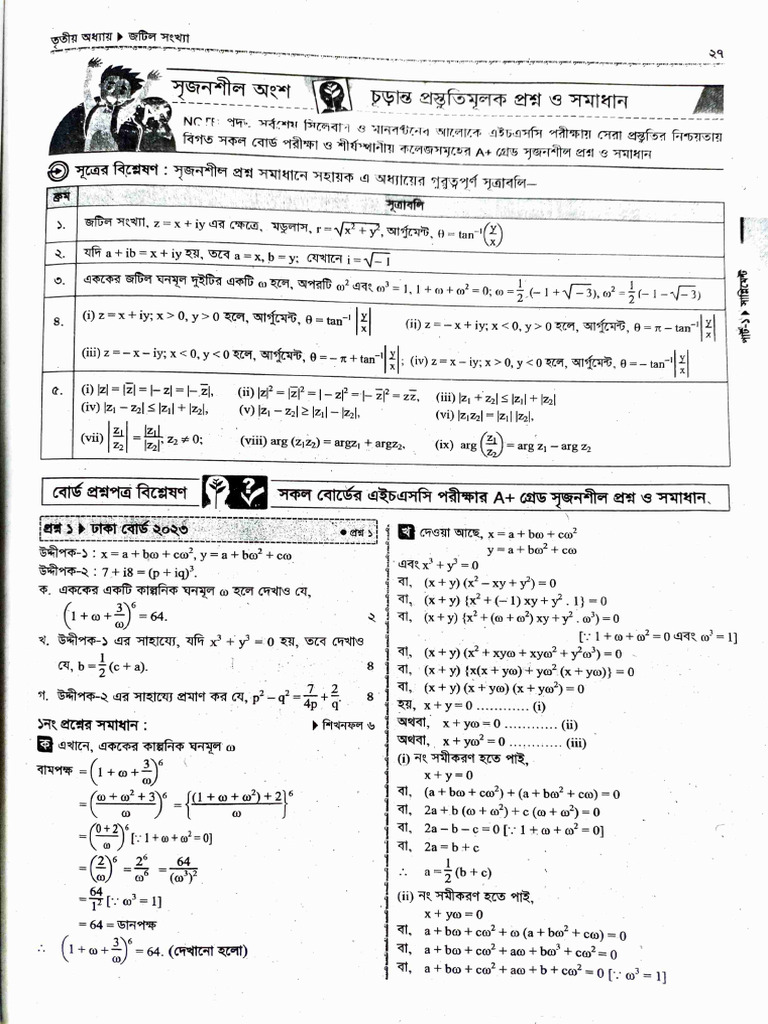 তৃতীয় অধ্যায় ▶ জটিল সংখ্যা
২৭
সৃজনশীল অংশ
চূড়ান্ত প্রস্তুতিমূলক প্রশ্ন ও সমাধান
সর্বশেষ সিলেবাস ও মানবন্টনের আলোকে এইচএসসি পরীক্ষায় সেরা প্রস্তুতির নিশ্চয়তায়
বিগত সকল বোর্ড পরীক্ষা ও শীর্ষস্থানীয় কলেজসমূহের A+ গ্রেড সৃজনশীল প্রশ্ন ও সমাধান
সূত্রের বিশ্লেষণ : সৃজনশীল প্রশ্ন সমাধানে সহায়ক এ অধ্যায়ের গুরুত্বপূর্ণ সূত্রাবলি—
ক্রম সূত্রাবলি
১. জটিল সংখ্যা, z = x + iy এর ক্ষেত্রে, মডুলাস, r = √(x² + y²), আর্গুমেন্ট, θ = tan⁻¹(y/x)
২. যদি a + ib = x + iy হয়, তবে a = x, b = y; যেখানে i = √–1
৩. এককের জটিল ঘনমূল দুইটির একটি ω হলে, অপরটি ω² এবং ω³ = 1, 1 + ω + ω² = 0; ω = 1/2 (– 1 + √–3), ω² = 1/2 (– 1 – √–3)
৪. (i) z = x + iy; x > 0, y > 0 হলে, আর্গুমেন্ট, θ = tan⁻¹ |y/x| (ii) z = – x + iy; x < 0, y > 0 হলে, আর্গুমেন্ট, θ = π – tan⁻¹ |y/x|
(iii) z = – x – iy; x < 0, y < 0 হলে, আর্গুমেন্ট, θ = – π + tan⁻¹ |y/x|; (iv) z = x – iy; x > 0, y < 0 হলে, আর্গুমেন্ট, θ = – tan⁻¹ |y/x|
৫. (i) |z| = |z̅| = |– z| = |– z̅|, (ii) |z|² = |z̅|² = |– z|² = |– z̅|² = zz̅, (iii) |z₁ + z₂| ≤ |z₁| + |z₂|
(iv) |z₁ – z₂| ≤ |z₁| + |z₂|, (v) |z₁ – z₂| ≥ |z₁| – |z₂|, (vi) |z₁z₂| = |z₁| |z₂|,
(vii) |z₁/z₂| = |z₁|/|z₂|; z₂ ≠ 0; (viii) arg (z₁z₂) = argz₁ + argz₂, (ix) arg (z₁/z₂) = arg z₁ – arg z₂
পার্ট-১ ▶ সাপ্লিমেন্ট
বোর্ড প্রশ্নপত্র বিশ্লেষণ
সকল বোর্ডের এইচএসসি পরীক্ষার A+ গ্রেড সৃজনশীল প্রশ্ন ও সমাধান
প্রশ্ন ১ ▶ ঢাকা বোর্ড ২০২৩ ● প্রশ্ন ১
উদ্দীপক-১ : x = a + bω + cω², y = a + bω² + cω
উদ্দীপক-২ : 7 + i8 = (p + iq)³.
ক. এককের একটি কাল্পনিক ঘনমূল ω হলে দেখাও যে,
(1 + ω + 3/ω)⁶ = 64. ২
খ. উদ্দীপক-১ এর সাহায্যে, যদি x³ + y³ = 0 হয়, তবে দেখাও
যে, b = 1/2 (c + a). ৪
গ. উদ্দীপক-২ এর সাহায্যে প্রমাণ কর যে, p² – q² = 7/4p + 2/q. ৪
১নং প্রশ্নের সমাধান : ▶ শিখনফল ৬
ক এখানে, এককের কাল্পনিক ঘনমূল ω
বামপক্ষ = (1 + ω + 3/ω)⁶
= ((ω + ω² + 3)/ω)⁶ = {((1 + ω + ω²) + 2)/ω}⁶
= ((0 + 2)/ω)⁶ [∵ 1 + ω + ω² = 0]
= (2/ω)⁶ = 2⁶/ω⁶ = 64/(ω³)²
= 64/1² [∵ ω³ = 1]
= 64 = ডানপক্ষ
∴ (1 + ω + 3/ω)⁶ = 64. (দেখানো হলো)
খ দেওয়া আছে, x = a + bω + cω²
y = a + bω² + cω
এবং x³ + y³ = 0
বা, (x + y) (x² – xy + y²) = 0
বা, (x + y) {x² + (– 1) xy + y² . 1} = 0
বা, (x + y) {x² + (ω + ω²) xy + y² . ω³} = 0
[∵ 1 + ω + ω² = 0 এবং ω³ = 1]
বা, (x + y) (x² + xyω + xyω² + y²ω³) = 0
বা, (x + y) {x(x + yω) + yω² (x + yω)} = 0
বা, (x + y) (x + yω) (x + yω²) = 0
হয়, x + y = 0 ............ (i)
অথবা, x + yω = 0 ............ (ii)
অথবা, x + yω² = 0 .......... (iii)
(i) নং সমীকরণ হতে পাই,
x + y = 0
বা, (a + bω + cω²) + (a + bω² + cω) = 0
বা, 2a + b (ω + ω²) + c (ω + ω²) = 0
বা, 2a – b – c = 0 [∵ 1 + ω + ω² = 0]
বা, 2a = b + c
∴ a = 1/2 (b + c)
(ii) নং সমীকরণ হতে পাই,
x + yω = 0
বা, a + bω + cω² + ω (a + bω² + cω) = 0
বা, a + bω + cω² + aω + bω³ + cω² = 0
বা, a + bω + cω² + aω + b + cω² = 0 [∵ ω³ = 1]